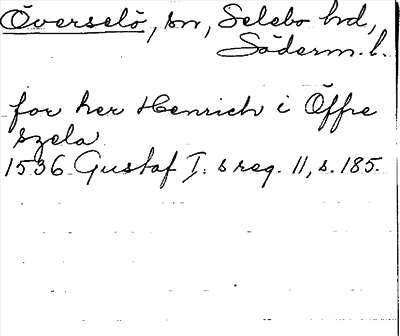 Överselö, sn, Selebo hd,
Söderm. l.
for her Henrich i Öffre
szela
1536 Gustaf I:s reg. 11, s. 185.